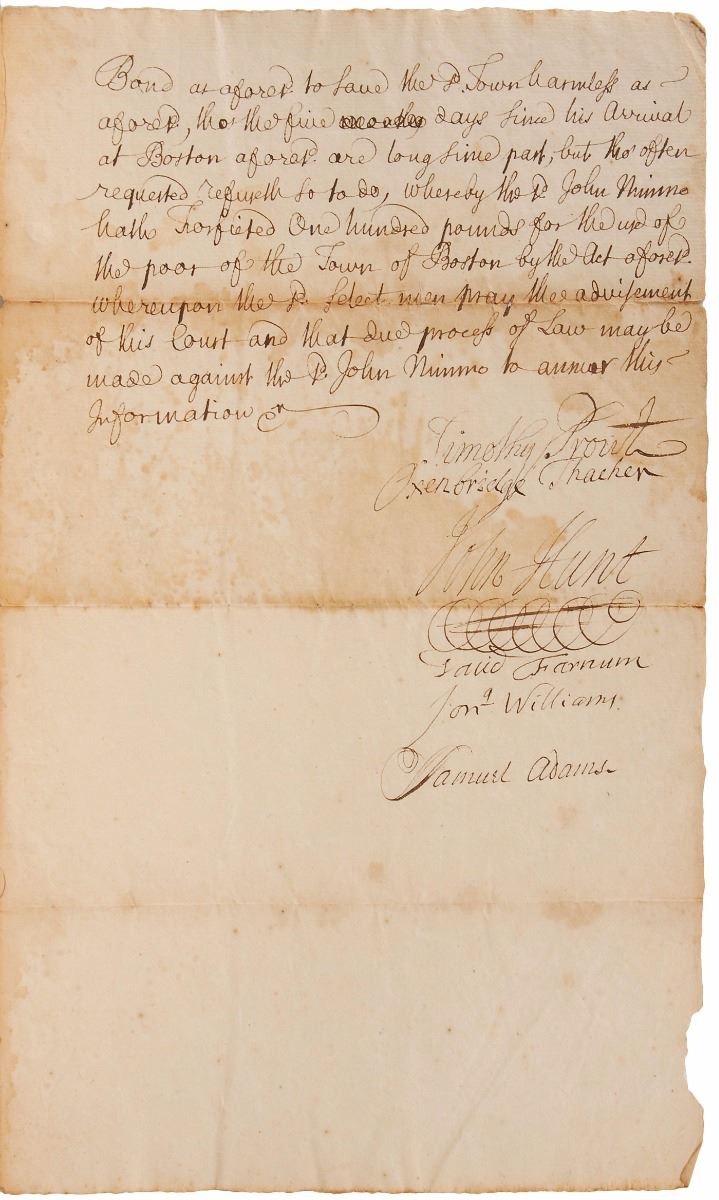 Bond as aforesd. to save the sd. Town harmless as
aforesd, tho' the five days since his Arrival
at Boston aforesd. are long since past, but tho' often
requested refuseth so to do, whereby the sd. John Nimmo
hath Forfieted One hundred pounds for the use of
the poor of the Town of Boston by the Act aforesd.
whereupon the sd. Select men pray the advisement
of this Court and that due process of Law may be
made against the sd. John Nimmo to answer this
Information
Timothy Prout
Oxenbridge Thacher
John Hunt
David Farnum
Jona. Williams.
Samuel Adams